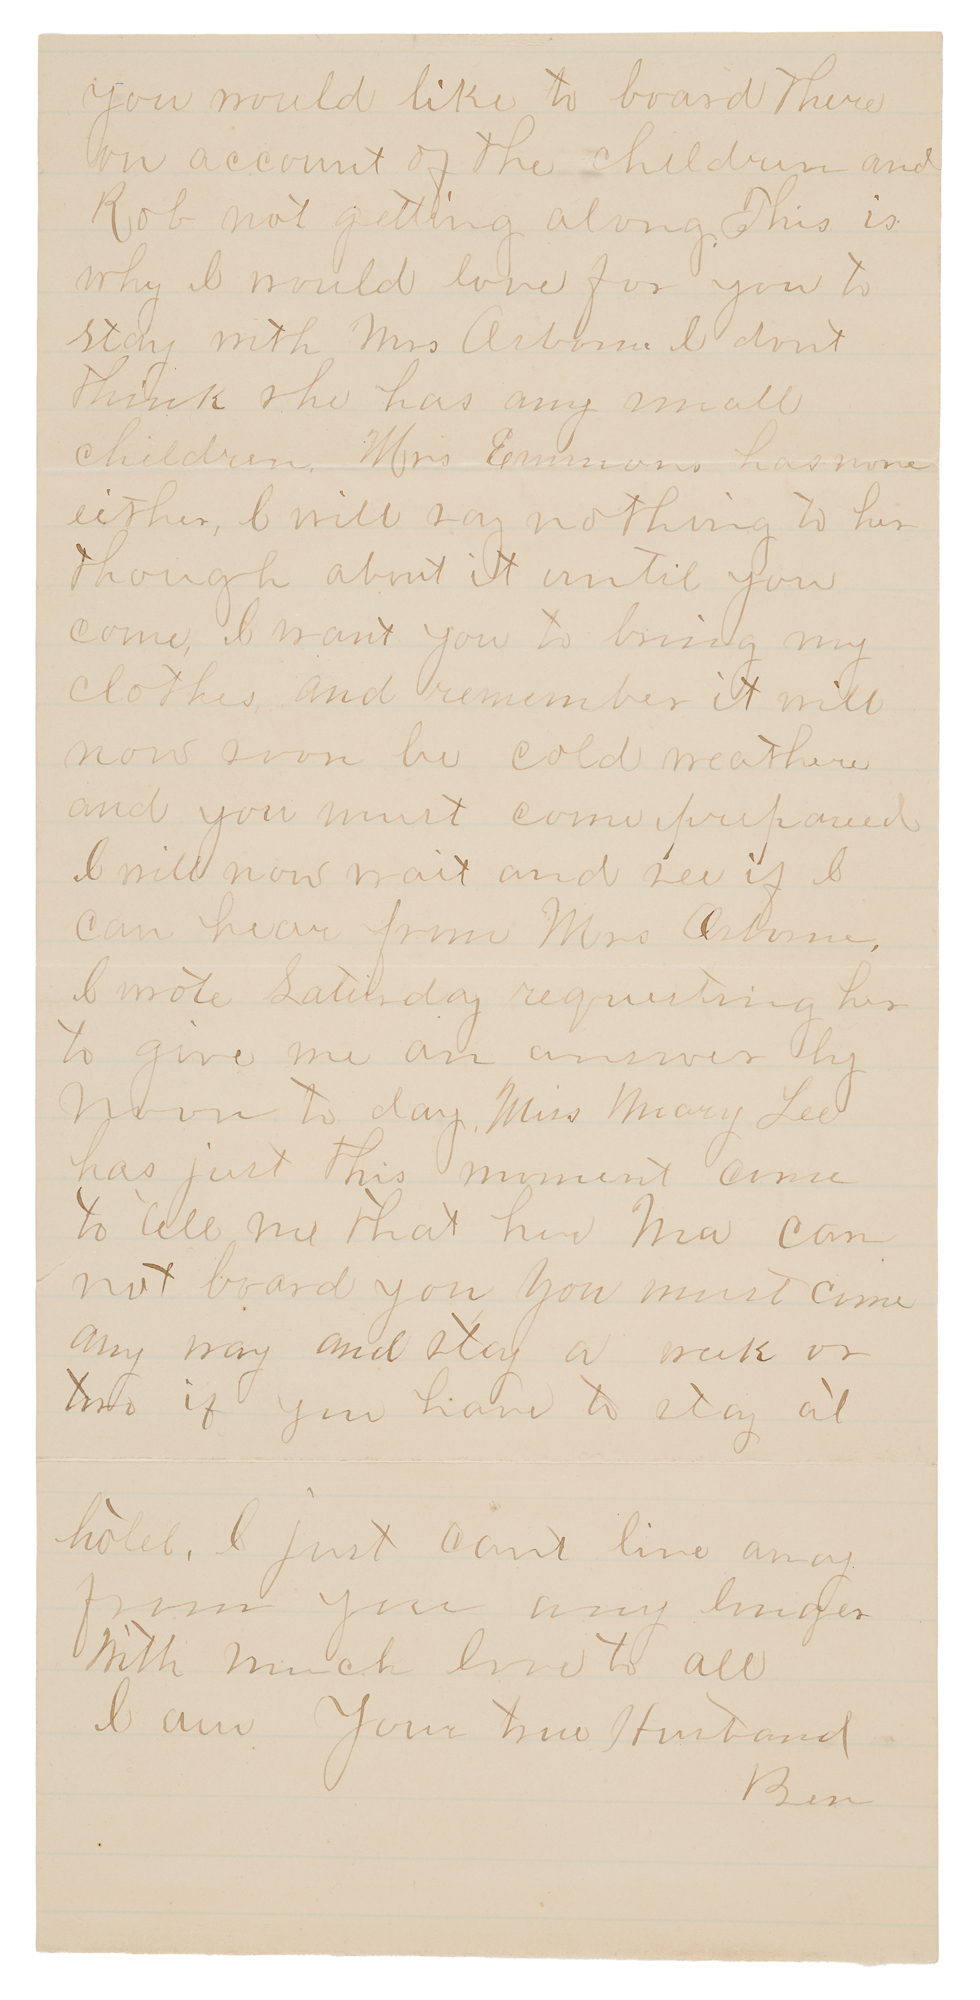 you would like to board there
on account of the children and
Rob not getting along, This is
why I would love for you to
stay with Mrs Osborne I dont
think she has any small
children. Mrs Emmons has none
either, I will say nothing to her
though about it until you
come, I want you to bring my
clothes, and remember it will
now soon be cold weathere
and you must come prepared
I will now wait and see if I
can hear from Mrs Osborne,
I wrote Saturday requesting her
to give me an answer by
Noon to day, Miss Mary Lee
has just this moment come
to tell me that her Ma can
not board you, You must come
any way and stay a week or
two if you have to stay at
hotel, I just cant live away
from you any longer
With much love to all
I am Your true Husband
Ben